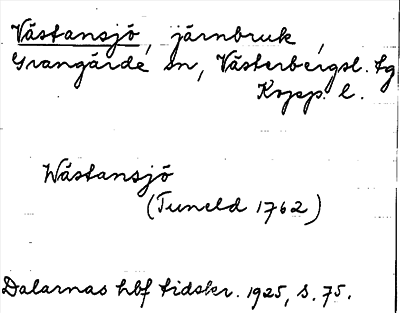 Västansjö, järnbruk,
Grangärde sn, Västerbergsl. tg
Kopp. l.
Wästansjö
(Tuneld 1762)
Dalarnas hbf tidskr. 1925, s. 75.